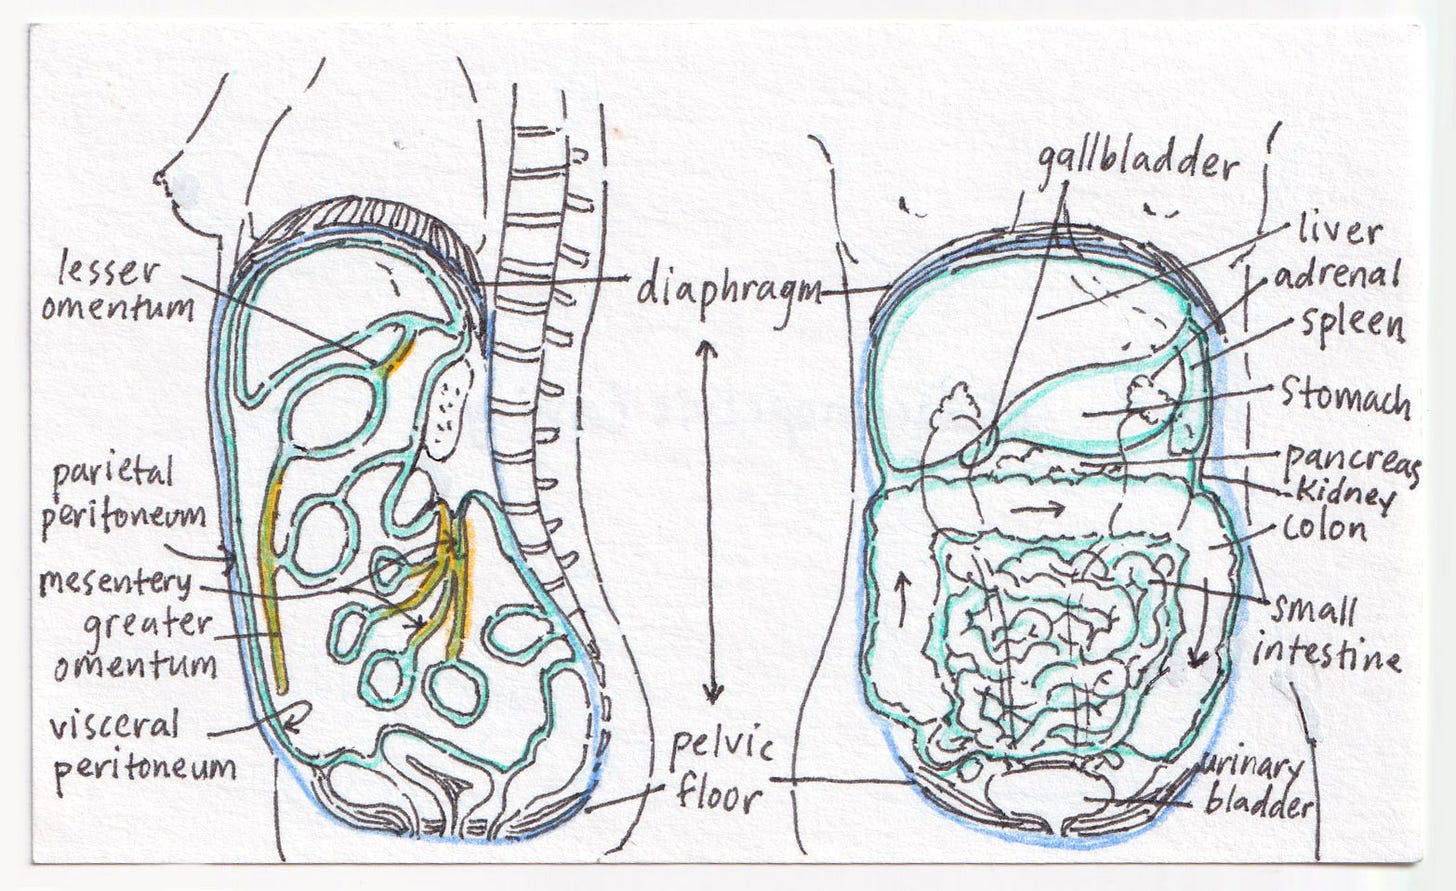 lesser
omentum
parietal
peritoneum
mesentery
greater
omentum
visceral
peritoneum
diaphragm
pelvic
floor
gallbladder
liver
adrenal
spleen
stomach
pancreas
kidney
colon
small
intestine
urinary
bladder